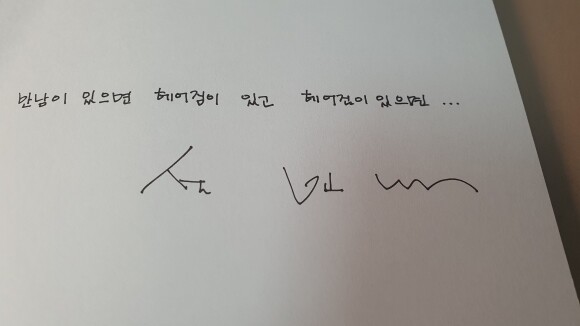 만남이 있으면 헤어짐이 있고 헤어짐이 있으면 ...